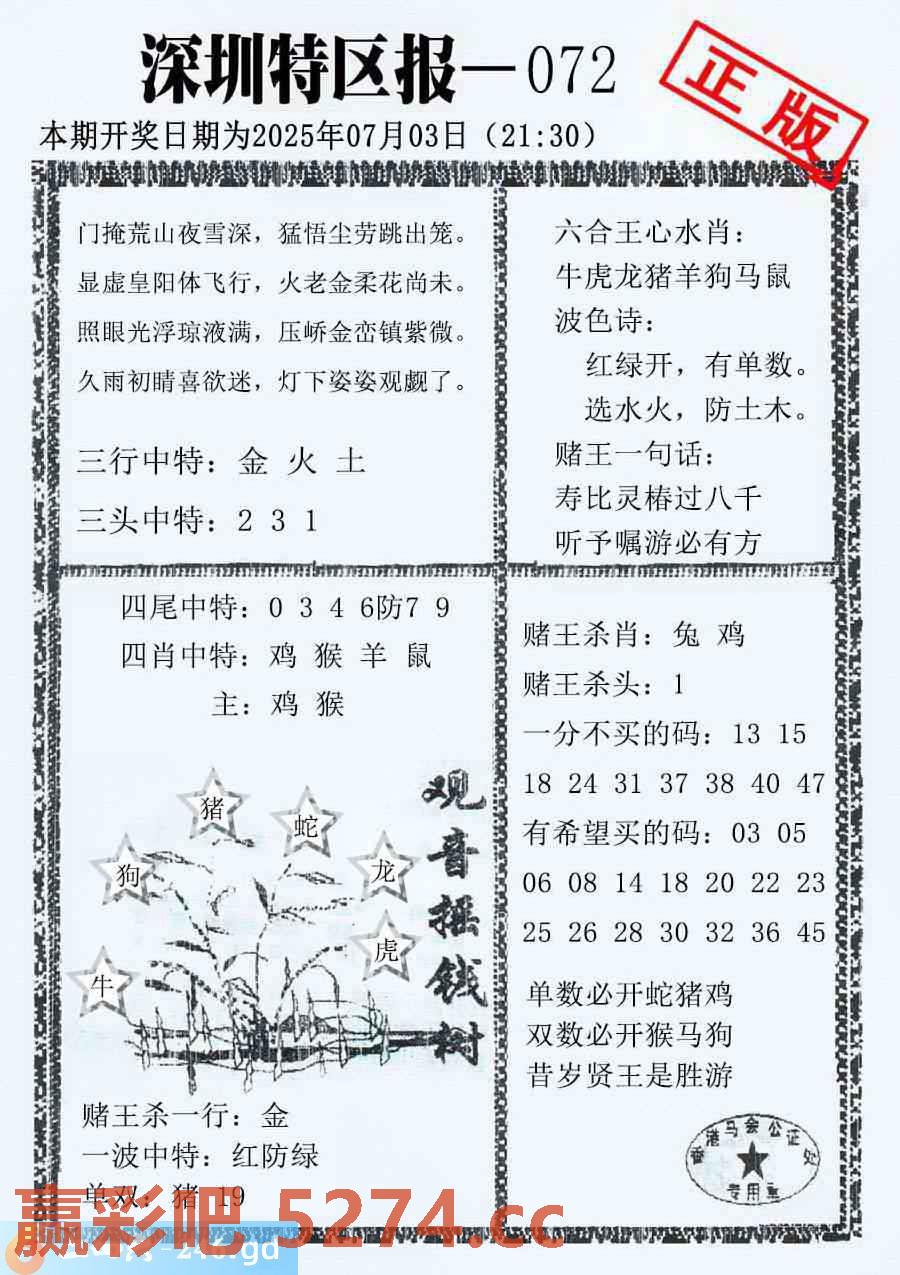 深圳特区报—072
正版
本期开奖日期为2025年07月03日（21:30）
门掩荒山夜雪深，猛悟尘劳跳出笼。
显虚皇阳体飞行，火老金柔花尚未。
照眼光浮琼液满，压峤金峦镇紫微。
久雨初晴喜欲迷，灯下姿姿观觑了。
三行中特：金 火 土
三头中特：2 3 1
六合王心水肖：
牛虎龙猪羊狗马鼠
波色诗：
红绿开，有单数。
选水火，防土木。
赌王一句话：
寿比灵椿过八千
听予嘱游必有方
四尾中特：0 3 4 6防7 9
四肖中特：鸡 猴 羊 鼠
主：鸡 猴
观音摇钱树
猪
蛇
狗
龙
虎
牛
赌王杀一行：金
一波中特：红防绿
单双：猪 19
赌王杀肖：兔 鸡
赌王杀头：1
一分不买的码：13 15
18 24 31 37 38 40 47
有希望买的码：03 05
06 08 14 18 20 22 23
25 26 28 30 32 36 45
单数必开蛇猪鸡
双数必开猴马狗
昔岁贤王是胜游
香港马会公证处
专用章
赢彩吧 5274.cc